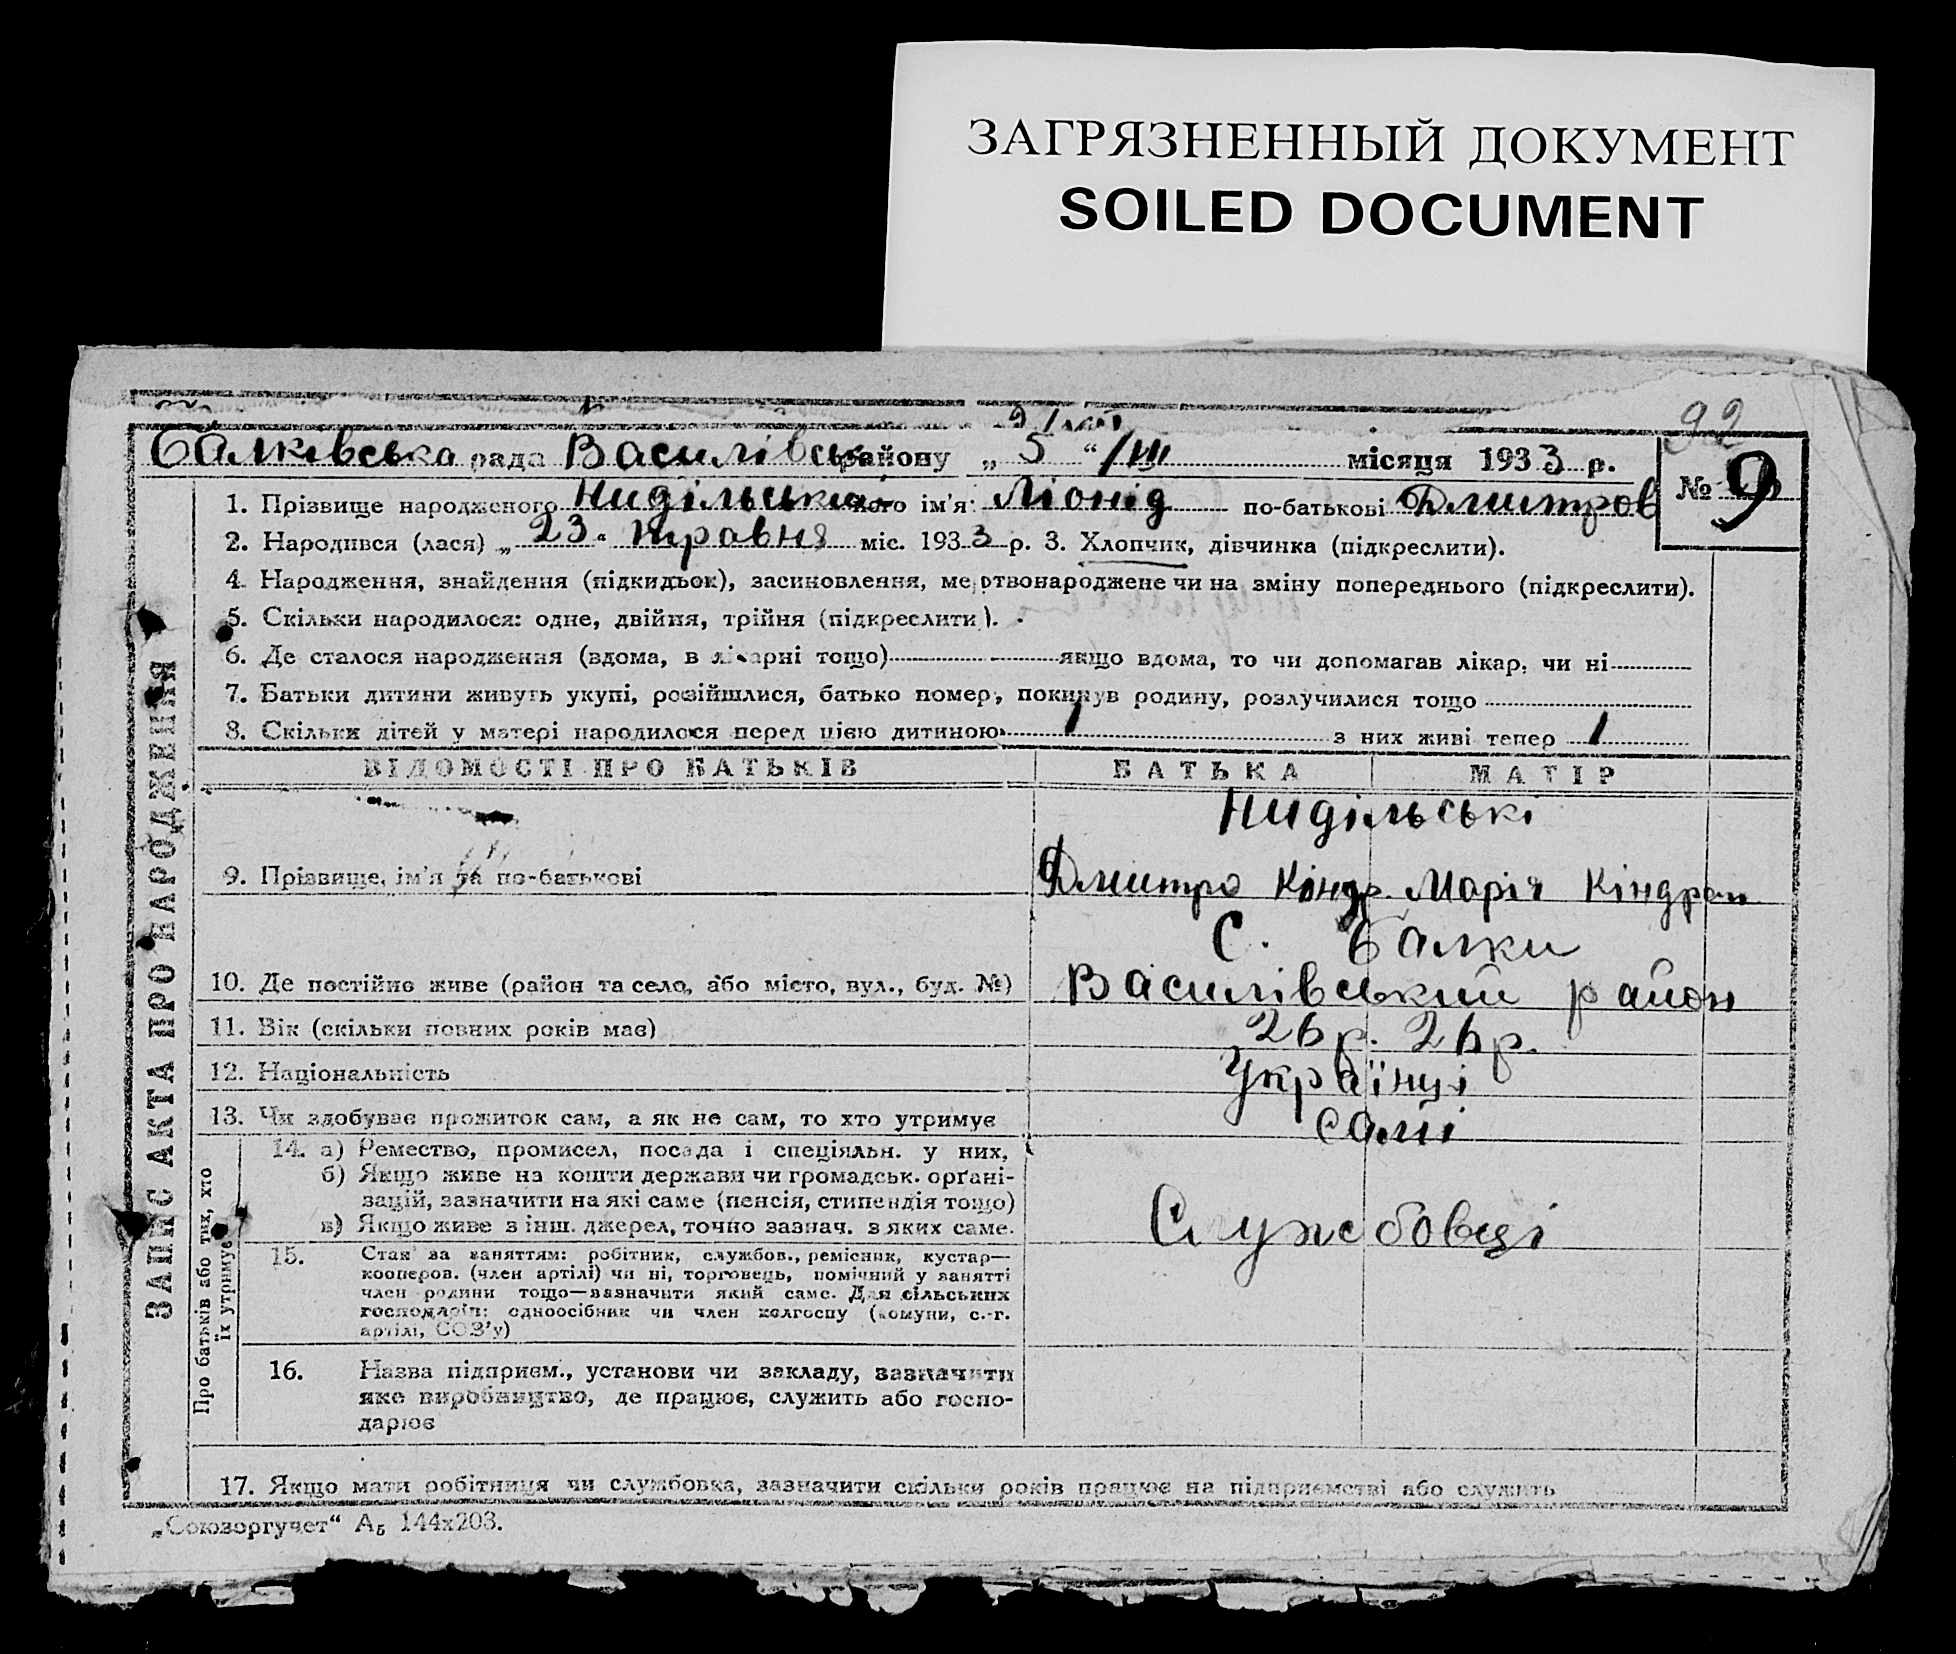 ЗАГРЯЗНЕННЫЙ ДОКУМЕНТ
SOILED DOCUMENT
92
Балківська рада Василівськ району „ 5 “ /III місяця 1933 р.
№ 9
1. Прізвище народженого Нидільський його ім'я: Ліонід по-батькові Дмитров
2. Народився (лася) „ 23 . травня міс. 1933 р. 3. Хлопчик, дівчинка (підкреслити).
4. Народження, знайдення (підкидьок), засиновлення, мертвонароджене чи на зміну попереднього (підкреслити).
5. Скільки народилося: одне, двійня, трійня (підкреслити).
6. Де сталося народження (вдома, в лікарні тощо) якщо вдома, то чи допомагав лікар, чи ні
7. Батьки дитини живуть укупі, розійшлися, батько помер, покинув родину, розлучилися тощо
8. Скільки дітей у матері народилося перед цією дитиною 1 з них живі тепер 1
ВІДОМОСТІ ПРО БАТЬКІВ БАТЬКА МАТІР
Нидільські
9. Прізвище, ім'я та по-батькові Дмитро Кіндр. Марія Кіндрат
с. Балки
10. Де постійно живе (район та село, або місто, вул., буд. №) Василівський район
11. Вік (скільки повних років має) 26 р. 26 р.
12. Національність Українці
13. Чи здобуває прожиток сам, а як не сам, то хто утримує самі
14. а) Ремество, промисел, посада і спеціяльн. у них,
б) Якщо живе на кошти держави чи громадськ. орґані-
зацій, зазначити на які саме (пенсія, стипендія тощо)
в) Якщо живе з інш. джерел, точно зазнач. з яких саме.
Службовці
15. Стан за заняттям: робітник, службов., ремісник, кустар—
кооперов. (член артілі) чи ні, торговець, помічний у занятті
член родини тощо—зазначити який саме. Для сільських
господарів: одноосібник чи член колгоспу (комуни, с.-г.
артілі, СОЗ'у)
16. Назва підприєм., установи чи закладу, зазначити
яке виробництво, де працює, служить або госпо-
дарює
17. Якщо мати робітниця чи службовка, зазначити скільки років працює на підприємстві або служить
ЗАПИС АКТА ПРО НАРОДЖЕННЯ
Про батьків або тих, хто
їх утримує
„Союзоргучет“ А5 144х203.